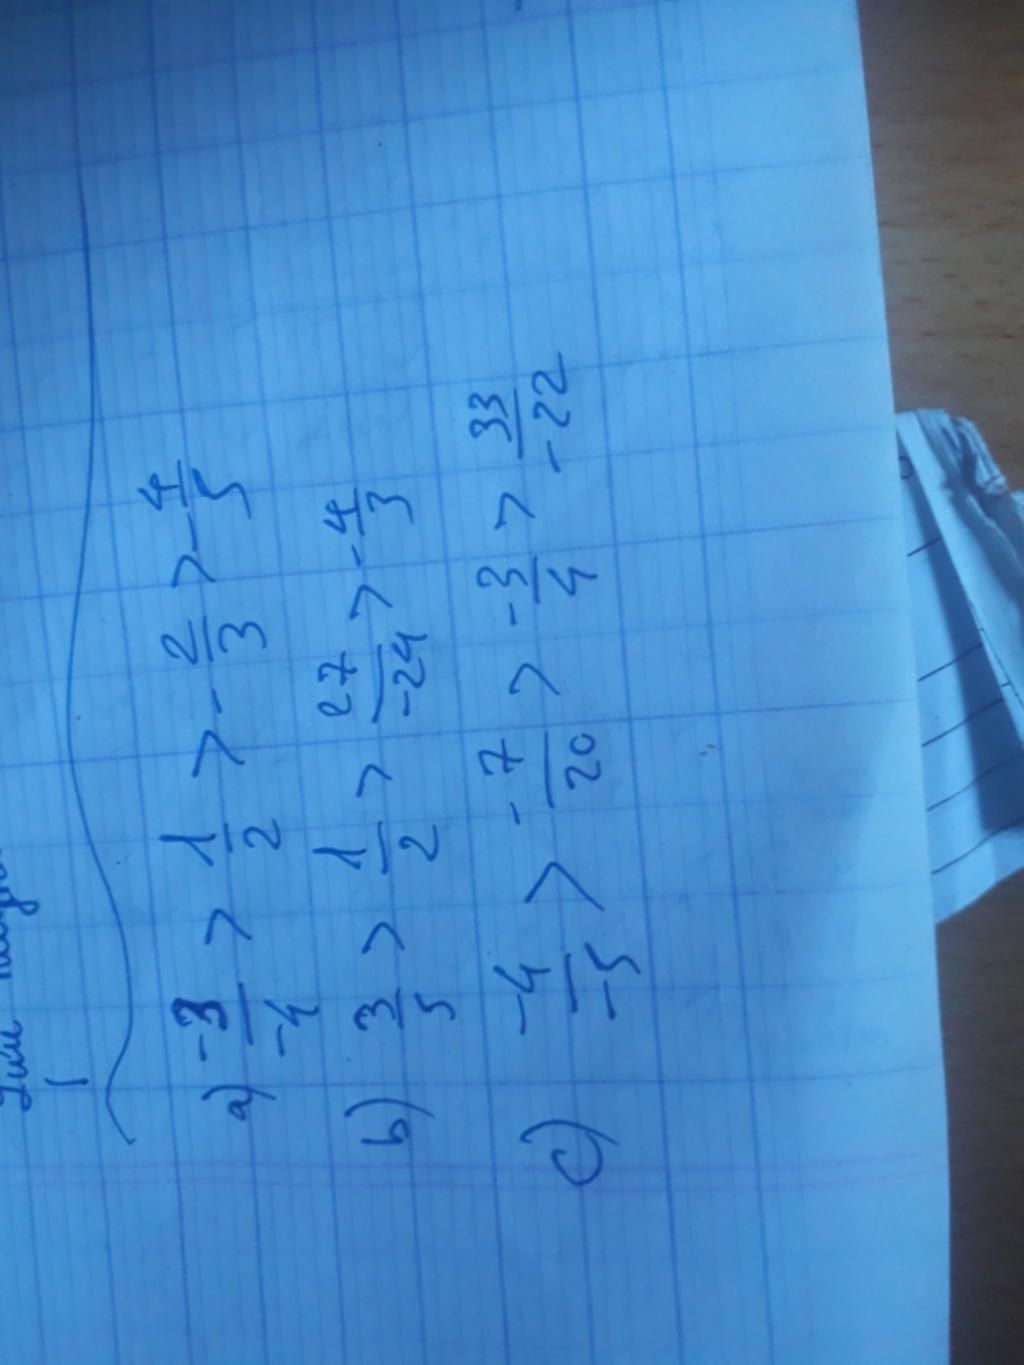 1
a) \frac{-3}{-4} > \frac{1}{2} > -\frac{2}{3} > -\frac{4}{5}
b) \frac{3}{5} > \frac{1}{2} > \frac{27}{-24} > -\frac{4}{3}
c) \frac{-4}{-5} > -\frac{7}{20} > -\frac{3}{4} > \frac{33}{-22}